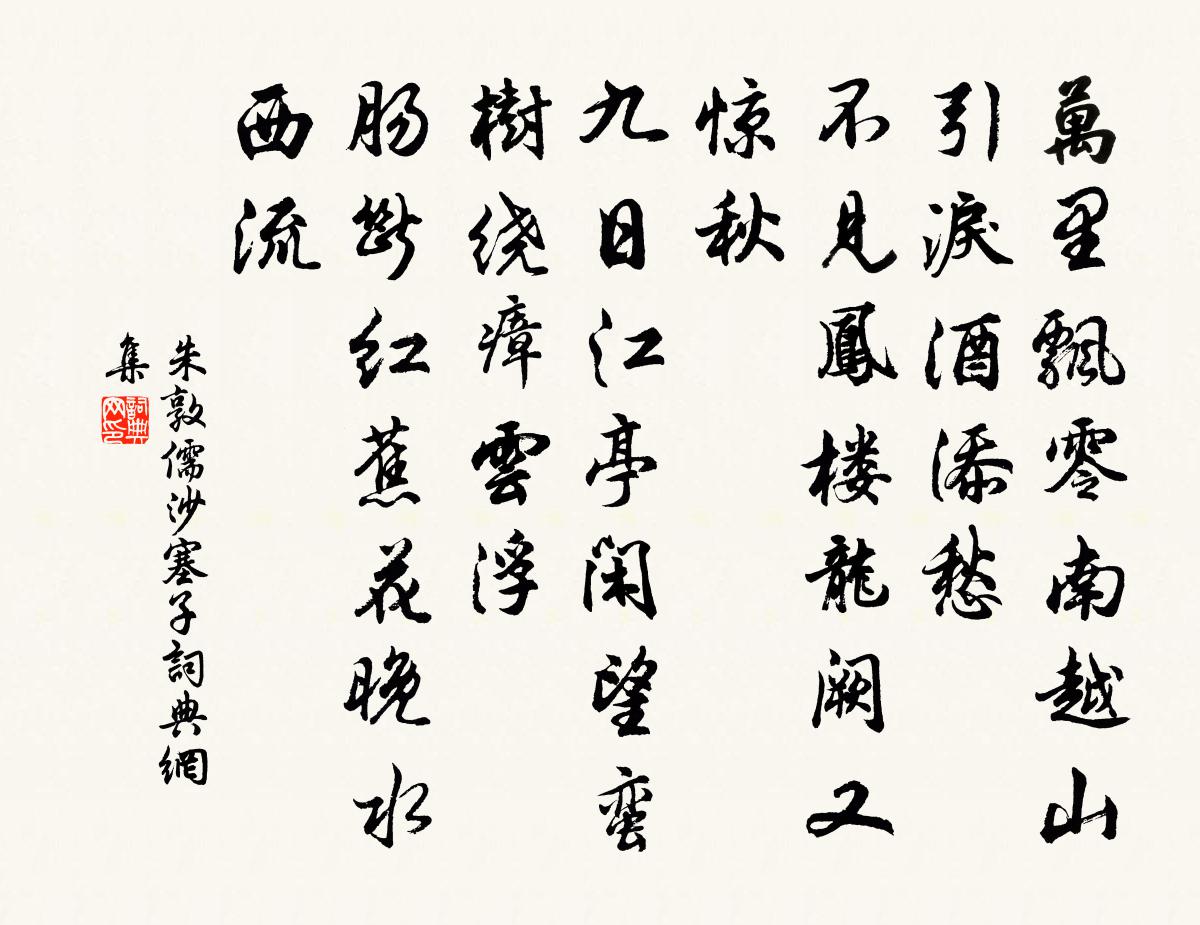 萬里飄零南越山
引淚酒添愁
不見鳳楼龍阙又
惊秋
九日江亭闲望蛮
樹绕瘴雲浮
肠斷红蕉花晚水
西流
朱敦儒沙塞子詞典網
集
詞典网印